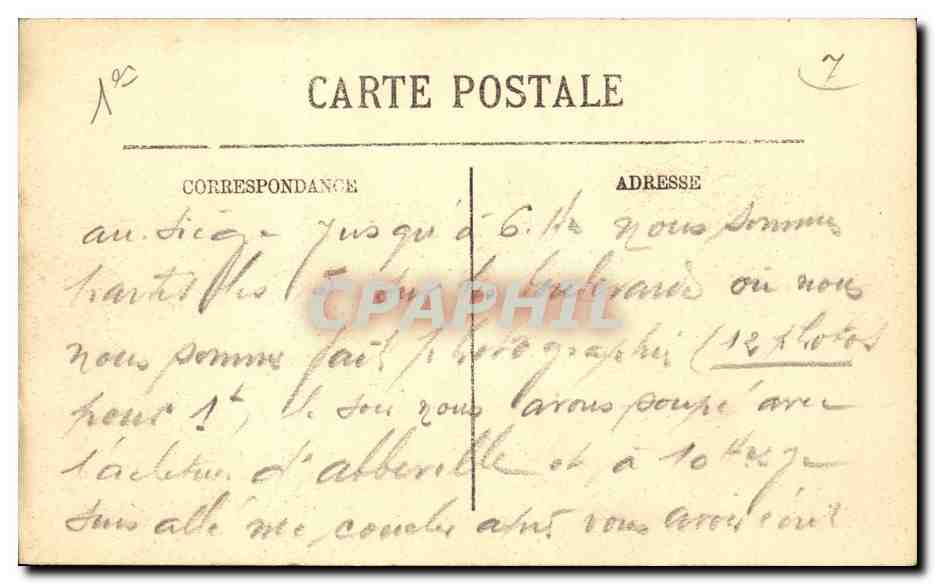 1es
7
CARTE POSTALE
CORRESPONDANCE
ADRESSE
au siège jusqu'à 6 Hrs nous sommes
partis les sur les boulevards où nous
nous sommes fait photographier (12 photos
pour 1f, le soir nous avons soupé avec
l'acheteur d'abbeville et à 10 Hres je
suis allé me coucher après vous avoir écrit
CPAPHIL